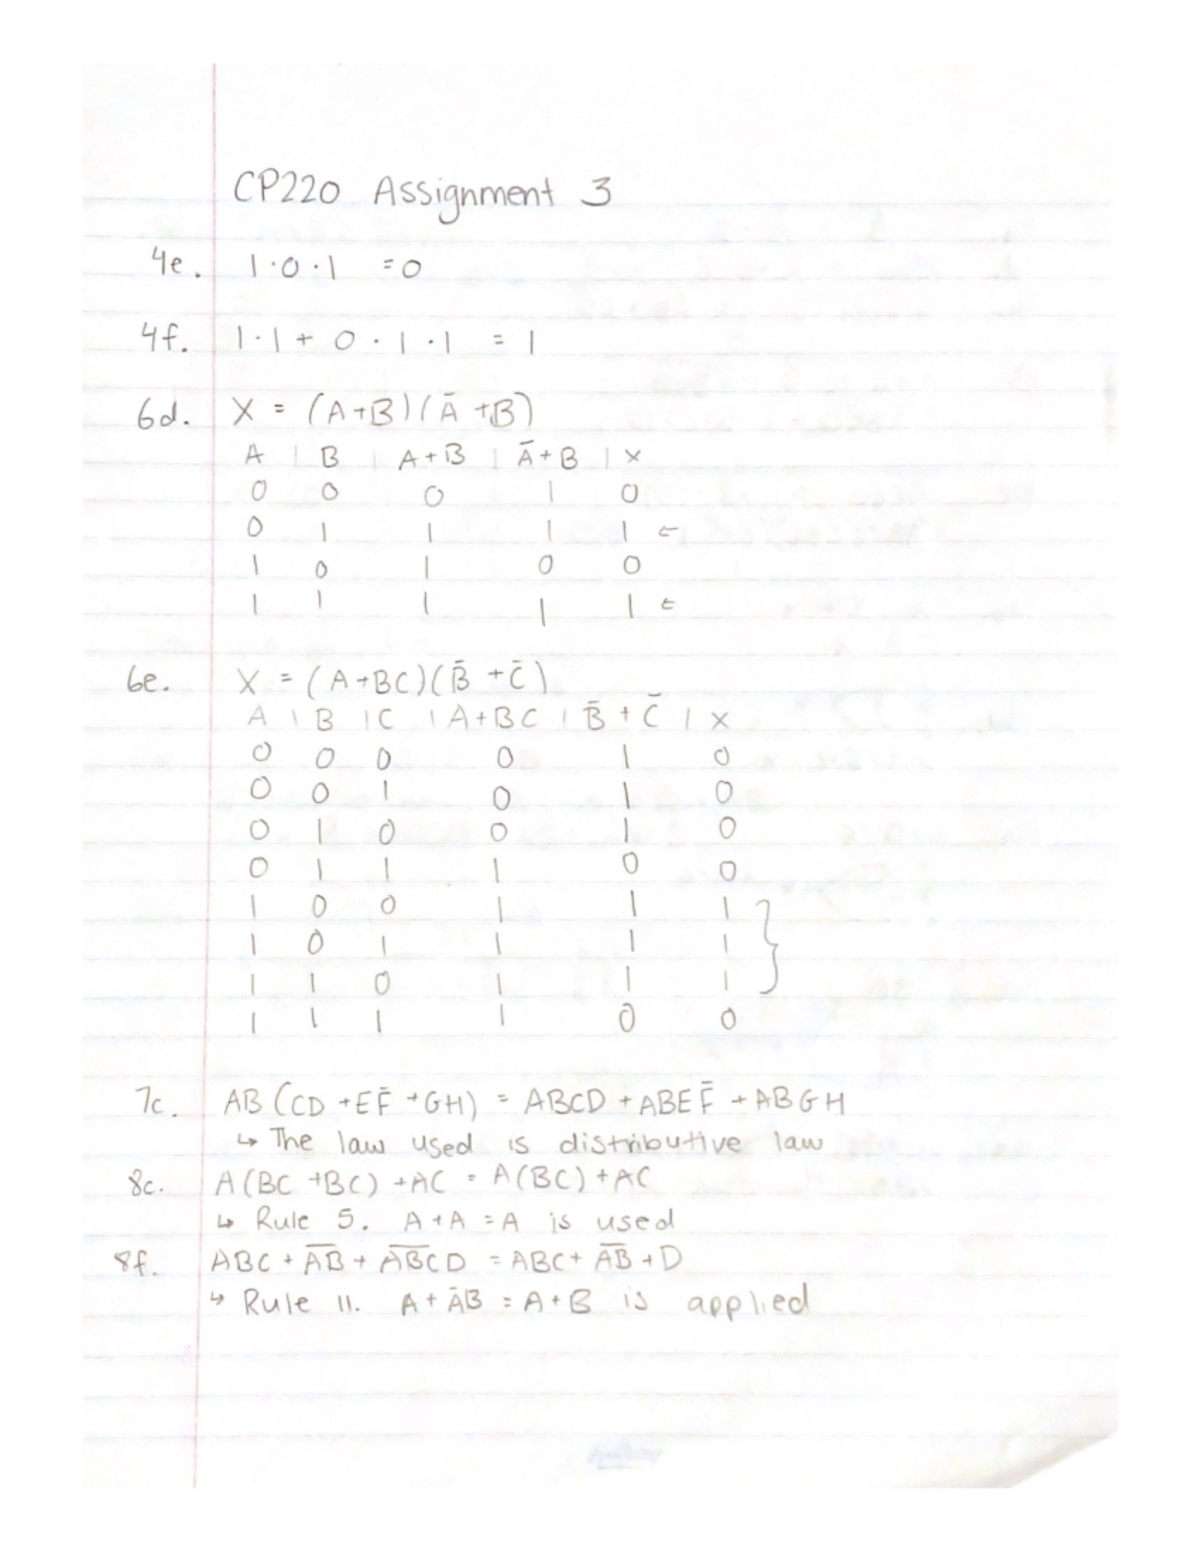 CP220 Assignment 3
4e. 1·0·1 =0
4f. 1·1+ 0·1·1 = 1
6d. X = (A+B)(Ā+B)
A | B | A+B | Ā+B | X
0 0 0 1 0
0 1 1 1 1 ←
1 0 1 0 0
1 1 1 1 1 ←
6e. X = (A+BC)(B̄+C̄)
A | B | C | A+BC | B̄ + C̄ | X
0 0 0 0 1 0
0 0 1 0 1 0
0 1 0 0 1 0
0 1 1 1 0 0
1 0 0 1 1 1
1 0 1 1 1 1
1 1 0 1 1 1
1 1 1 1 0 0
7c. AB(CD+EF̄+GH) = ABCD+ABEF̄+ABGH
↳ The law used is distributive law
8c. A(BC+BC)+AC = A(BC)+AC
↳ Rule 5. A+A=A is used
8f. ABC + A̅B̅ + A̅B̅C̅D = ABC+ A̅B̅ +D
↳ Rule 11. A+ĀB = A+B is applied